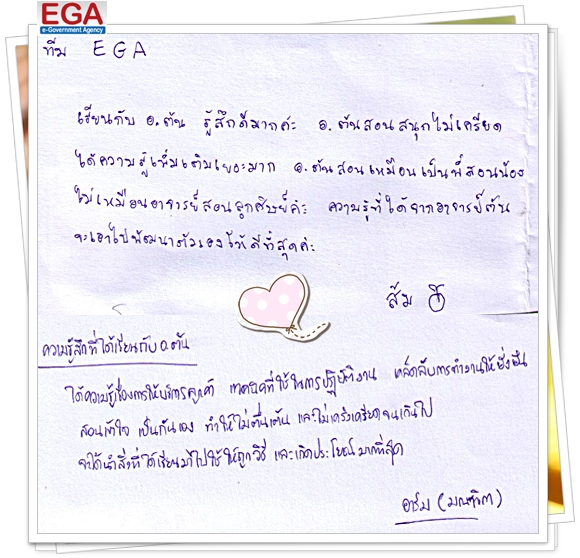 EGA
e-Government Agency
ทีม EGA
เรียนกับ อ.ต้น รู้สึกดีมากค่ะ อ.ต้นสอนสนุกไม่เครียด
ได้ความรู้เพิ่มเติมเยอะมาก อ.ต้นสอนเหมือนเป็นพี่สอนน้อง
ไม่เหมือนอาจารย์สอนลูกศิษย์ค่ะ ความรู้ที่ได้จากอาจารย์ต้น
จะเอาไปพัฒนาตัวเองให้ดีที่สุดค่ะ
ส้ม
ความรู้สึกที่ได้เรียนกับ อ.ต้น
ได้ความรู้เรื่องการให้บริการลูกค้า เทคนิคที่ใช้ในการปฏิบัติงาน เคล็ดลับการทำงานให้ยั่งยืน
สอนเข้าใจ เป็นกันเอง ทำให้ไม่ตื่นเต้น และไม่เคร่งเครียดจนเกินไป
จะได้นำสิ่งที่ได้เรียนมาไปใช้ให้ถูกวิธี และเกิดประโยชน์มากที่สุด